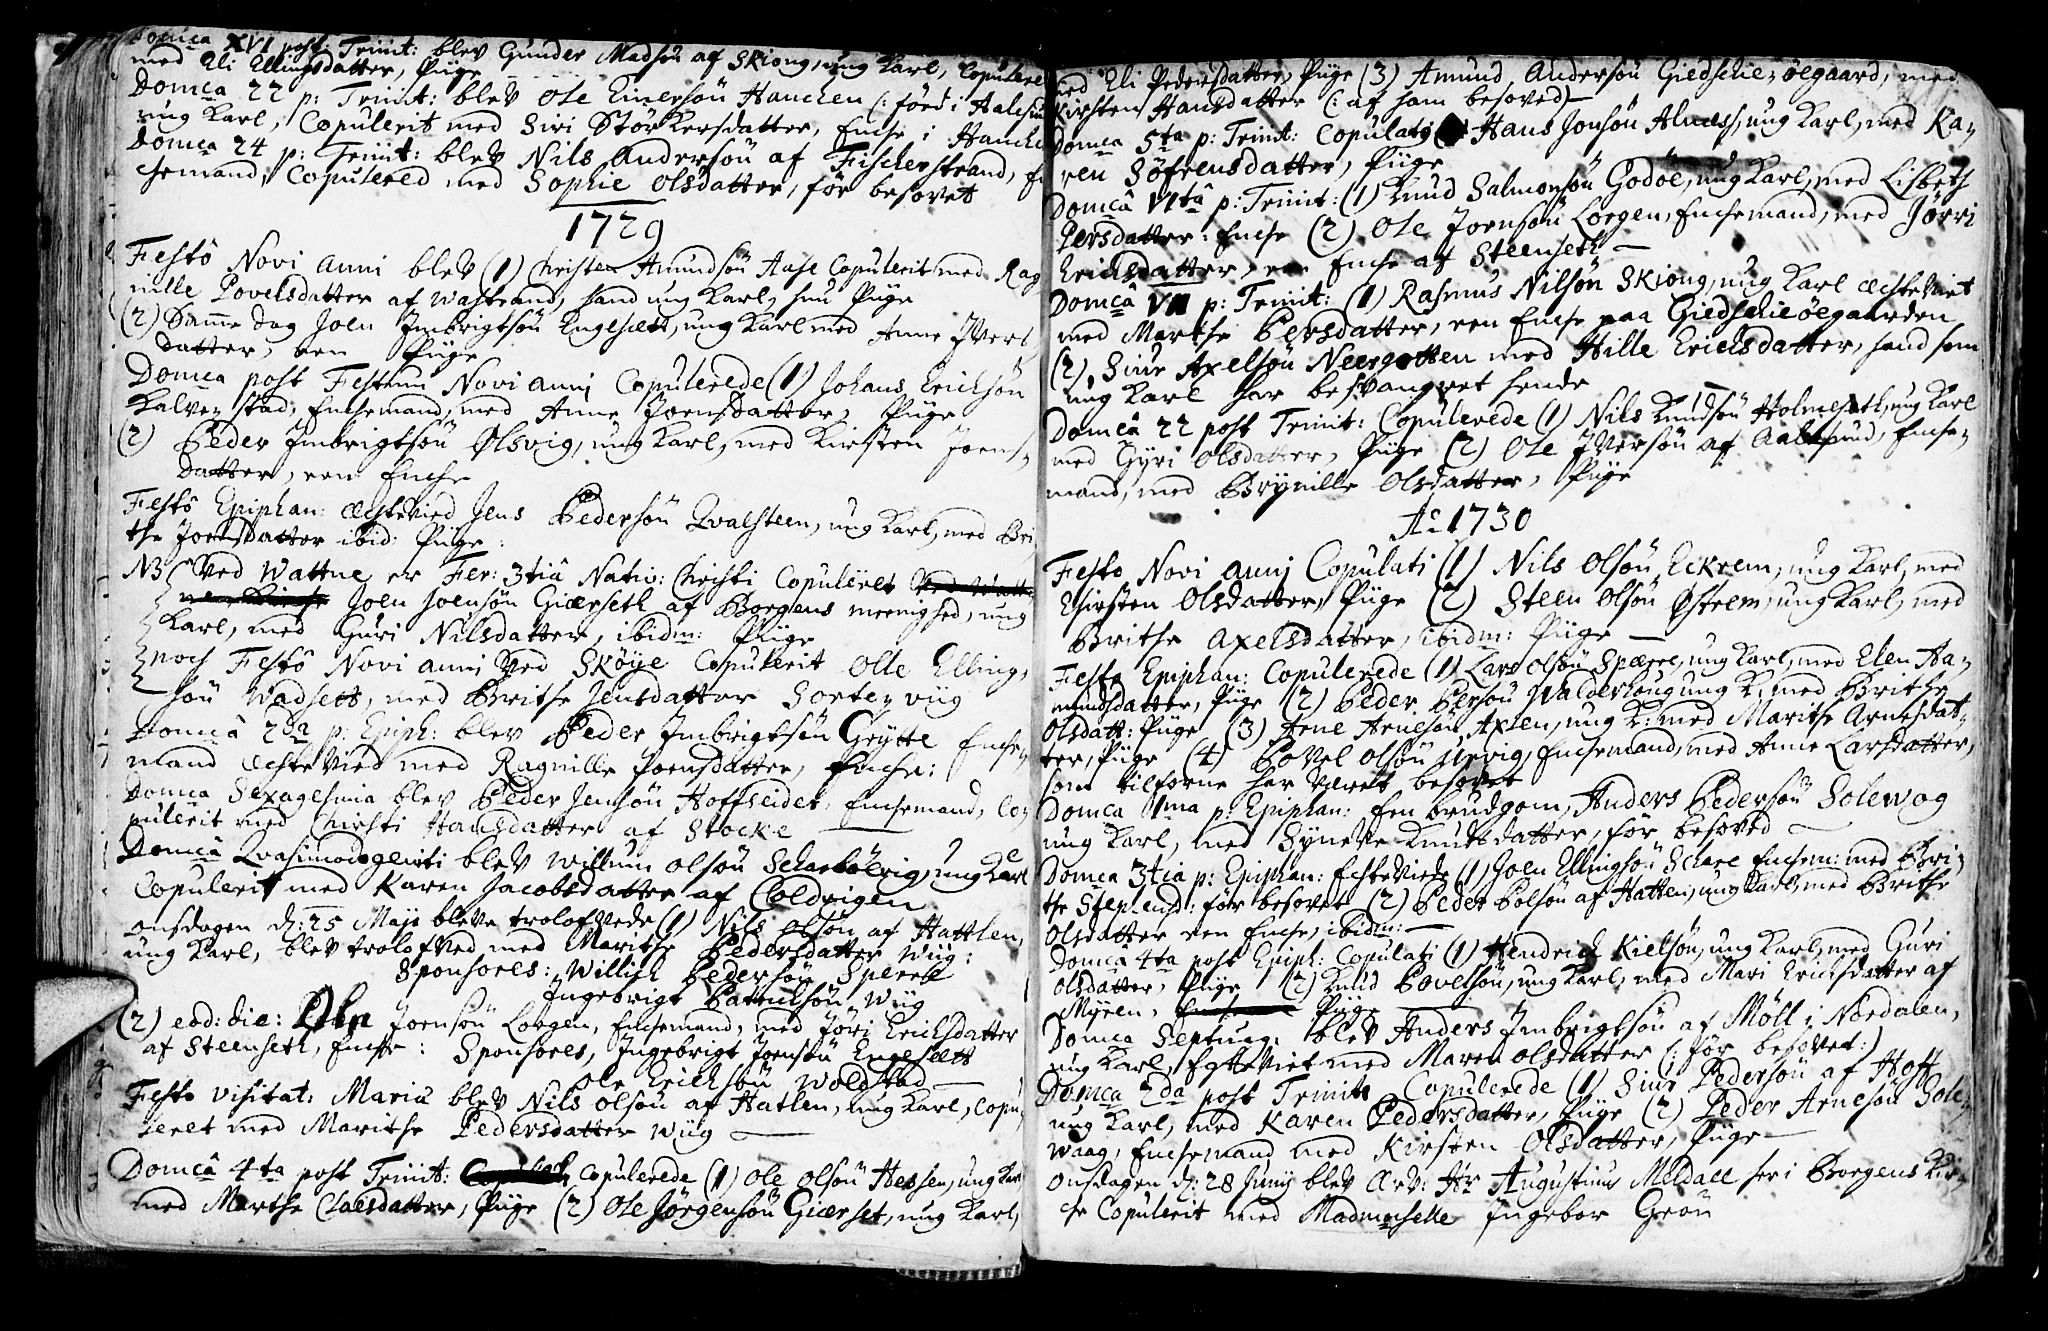 Domca XVI post Trinit: blev Gunder Madsön af Skiong, ung Karl, Copulerit
med Eli Ellingsdatter, Piige
Domca 22 p: Trinit: blev Ole Einersön Hancken (: förd i Aalesund
ung Karl, Copulerit med Siri Störkersdatter, Encke i Hancken
Domca 24 p: Trinit: blev Nils Andersön af Fischerstrand, En
chemand, Copulered med Sophie Olsdatter, för besovet
1729
Festô Novi anni blev (1) Christen Amundsön Aase Copulerit med Rag
nille Povelsdatter af Wastrand, hand ung Karl, hun Piige
(2) Samme dag Joen Imbrigtsön Engesætt, ung Karl med Anne Ivers
datter, een Piige
Domca post Festum Novi anni Copulerede (1) Johans Ericksön
Kalve, stad, Enchemand, med Anne Joensdatter, Piige
(2) Peder Imbrigtsön Ølsvig, ung Karl, med Kirsten Joens,
datter, een Enche
Festô Epiphan: ächtevied Jens Pedersön Qvalsteen, ung Karl, med Bri,
the Joensdatter ibid: Piige:
NB Ved Wattne er Fer: 3tiâ Nativ: Christi Copuleret
Joen Joensön Giærseth af Borgens meenighed, ung
Karl, med Guri Nilsdatter, ibidm: Piige
noch Festô Novi anni ved Skøye Copulerit Olle Elling,
sön Wadsett, med Brithe Jensdatter Sorte, viig
Domcâ 2da p: Epiph: blev Peder Imbrigtsön Grÿtte Enche,
mand ächtevied med Ragnille Joensdatter, Enche:
Domca Sexagesima blev Peder Jensön Hoffseidet, Enchemand, Co,
pulerit med Christi Hansdatter af Stocke
Domcâ Qvasimodogeniti blev Willum Olsön Scharbölvig, ung Karl
Copulerit med Karen Jacobsdatter af Coldvigen
Onsdagen d: 25 Maji bleve trolofvede (1) Nils Olsön af Hattlen,
ung Karl, blev trolofved med Marithe Pedersdatter Wiig:
Sponsores: Willich Pedersön Sperre
Ingebrigt Patrichsön Wiig
(2) eod: die: Ole Joensön Loegen, Enchemand, med Jöri Erichsdatter
af Steenseth, Enche: Sponsores, Ingebrigt Joensön Engesætt
Ole Erichsön Woldstad
Festo visitat: Mariæ blev Nils Olsön af Hatlen, ung Karl, Copu,
leret med Marithe Pedersdatter Wiig
Domcâ 4ta post Trinit: Copulerede (1) Ole Olsön Hessen, ung Karl
med Marthe Claesdatter, Piige (2) Ole Jörgensön Giærset, ung Karl,
med Eli Pedersdatter, Piige (3) Amund Andersön Giedschie, öegaard, med
Kirsten Hansdatter (: af ham besoved)
Domca 5ta p: Trinit: Copulati Hans Jonsön Alnæss, ung Karl, med Ka,
ren Söfrensdatter, Piige
Domcâ VIta p: Trinit: (1) Knud Salmonsön Godöe, ung Karl, med Lisbeth
Persdatter: Enche (2) Ole Joensön Loegen, Enchemand, med Jörri
Erichsdatter, een Enche af Steenseth
Domcâ VII p: Trinit: (1) Rasmus Nilsön Skiong, ung Karl ächteviet
med Marthe Persdatter, een Enche paa Giedschieöegaarden
(2), Siur Axelsön Neergotten med Hille Ericksdatter, hand som
ung Karl har besvangret hende
Domcâ 22 post Trinit: Copulerede (1) Nils Knudsön Holmeseth, ung Karl
med Gÿri Olsdatter, Piige (2) Ole Iversön af Aalesund, Enche,
mand, med Brÿnille Olsdatter, Piige
Ao 1730
Festo Novi anni Copulati (1) Nils Olsön Eckrem, ung Karl, med
Khirsten Olsdatter, Piige (2) Steen Olsön Østrem, ung Karl, med
Brithe Axelsdatter, ibidm: Piige
Festo Epiphan: Copulerede (1) Lars Olsön Spærre, ung Karl, med Elen Aa,
mundsdatter, Piige (2) Peder Persön Walderhoug ung K: med Brithe
Olsdatt: Piige (3) Arne Arnesön Axlen, ung K: med Marithe Arnesdat,
ter, Piige (4) Povel Olsön Urvig, Enchemand, med Anne Larsdatter,
som tilforne har været besovet
Domca 1ma p: Epiphan: Een brudgom, Anders Pedersön Solewog
ung Karl, med Sÿneve Knudsdatter, för besoved
Domca 3tia p: Epiphan: Echteviede (1) Joen Ellingsön Schare Enchem: med Bri,
the Stephensd: för besovet (2) Peder Polsön af Hatten, ung Karl, med Brithe
Olsdatter een Enche, ibidm:
Domca 4ta post Epiph: Copulati (1) Hendrich Kielsön, ung Karl, med Guri
Olsdatter, Piige (2) Knud Povelsön, ung Karl, med Mari Ericksdatter af
Mÿren, Piige
Domca Septuag: blev Anders Imbrigtsön af Möll i Nordalen,
ung Karl, Egteviet med Maren Olsdatter (: för besovet:)
Domca 2da post Trinit: Copulerede (1) Siur Pedersön af Hoff
ung Karl, med Karen Pedersdatter, Piige (2) Peder Arnesön Sole,
waag, Enchemand med Kirsten Olsdatter, Piige
Onsdagen d: 28 Junij blev Ærv: Hr Augustinus Meldall heri Borgens Kir,
che Copulerit med Madmoiselle Ingebor Grön